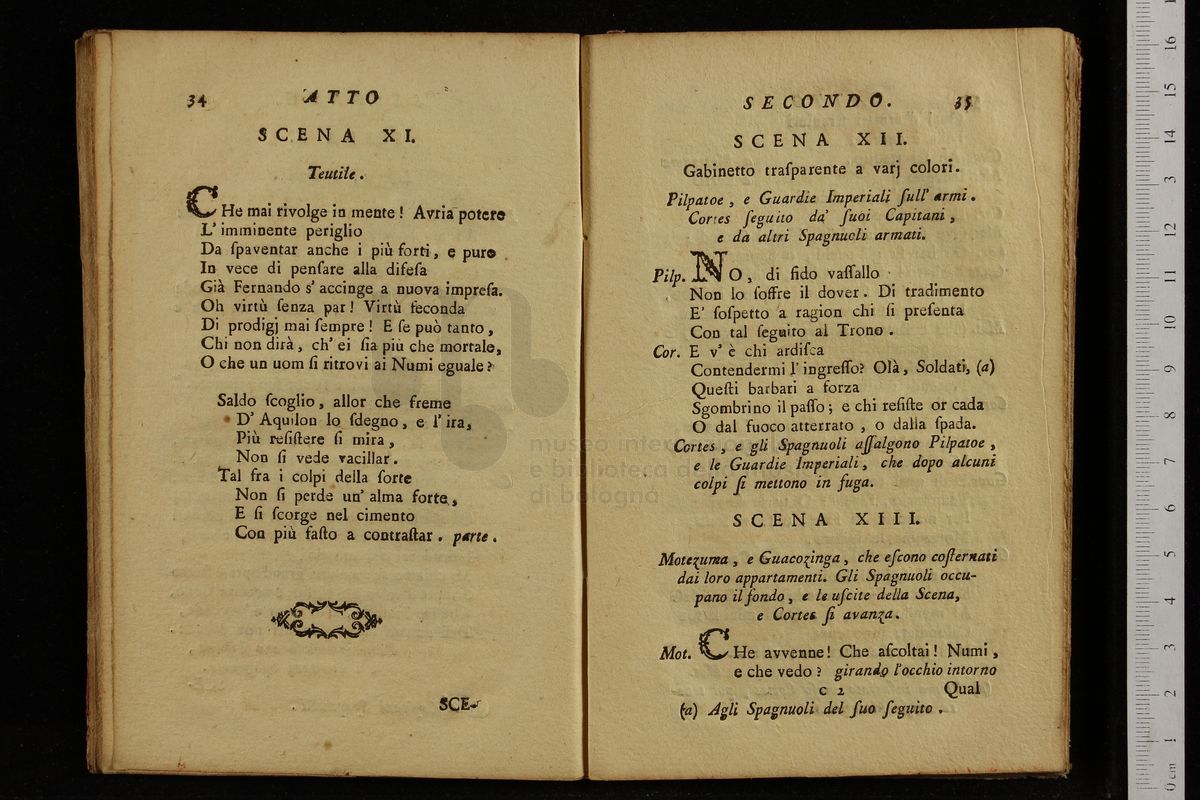 34 ATTO
SCENA XI.
Teutile.
CHe mai rivolge in mente! Avria potere
L' imminente periglio
Da ſpaventar anche i più forti, e pure
In vece di penſare alla difeſa
Già Fernando s' accinge a nuova impreſa.
Oh virtù ſenza par! Virtù feconda
Di prodigj mai ſempre! E ſe può tanto,
Chi non dirà, ch' ei ſia più che mortale,
O che un uom ſi ritrovi ai Numi eguale?
Saldo ſcoglio, allor che freme
D' Aquilon lo ſdegno, e l' ira,
Più reſiſtere ſi mira,
Non ſi vede vacillar.
Tal fra i colpi della ſorte
Non ſi perde un' alma forte,
E ſi ſcorge nel cimento
Con più faſto a contraſtar. parte.
SCE-
SECONDO. 35
SCENA XII.
Gabinetto traſparente a varj colori.
Pilpatoe, e Guardie Imperiali ſull' armi.
Cortes ſeguito da' ſuoi Capitani,
e da altri Spagnuoli armati.
Pilp. NO, di fido vaſſallo
Non lo ſoffre il dover. Di tradimento
E' ſoſpetto a ragion chi ſi preſenta
Con tal ſeguito al Trono.
Cor. E v' è chi ardiſca
Contendermi l' ingreſſo? Olà, Soldati, (a)
Queſti barbari a forza
Sgombrino il paſſo; e chi reſiſte or cada
O dal fuoco atterrato, o dalla ſpada.
Cortes, e gli Spagnuoli aſſalgono Pilpatoe,
e le Guardie Imperiali, che dopo alcuni
colpi ſi mettono in fuga.
SCENA XIII.
Motezuma, e Guacozinga, che eſcono coſternati
dai loro appartamenti. Gli Spagnuoli occu-
pano il fondo, e le uſcite della Scena,
e Cortes ſi avanza.
Mot. CHe avvenne! Che aſcoltai! Numi,
e che vedo? girando l'occhio intorno
C 2 Qual
(a) Agli Spagnuoli del ſuo ſeguito.
0 cm 1 2 3 4 5 6 7 8 9 10 11 12 13 14 15 16